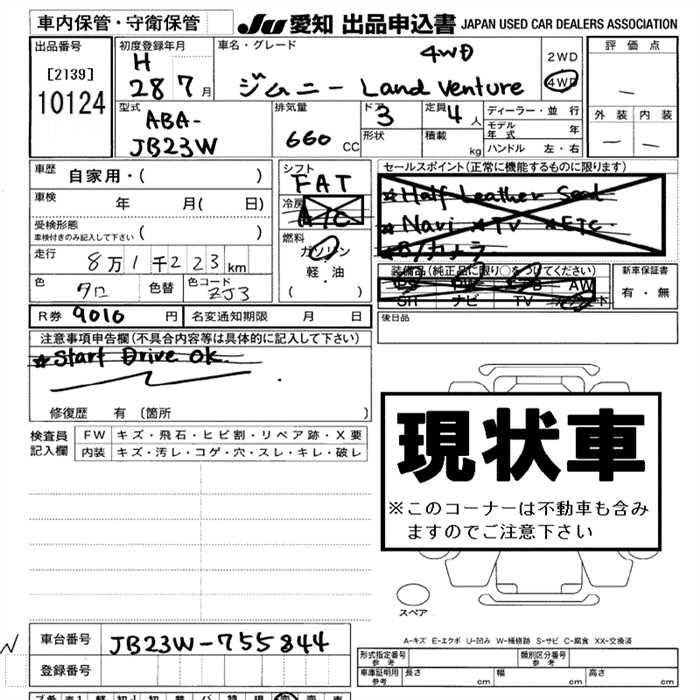 車内保管・守衛保管
JU 愛知 出品申込書 JAPAN USED CAR DEALERS ASSOCIATION
出品番号
[2139]
10124
初度登録年月
H
28 7月
車名・グレード
4WD
ジムニー Land Venture
2WD
4WD
評価点
外装 内装
型式
ABA-
JB23W
排気量
660 cc
ドア
3
形状
定員
4人
積載
kg
ディーラー・並行
モデル年式 年
ハンドル 左・右
車歴 自家用・( )
車検 年 月( 日)
受検形態
車検付きのみ記入して下さい ( )
走行 8万1千223km
色 クロ 色替 色コード ZJ3
シフト
FAT
冷房
A/C
燃料
ガソリン
軽・油
・( )
セールスポイント(正常に機能するものに限ります)
★Half Leather Seat
★Navi ★TV ★ETC
★Bカメラ
装備品(純正品に限り○をつけてください)
PS PW AB AW
SR ナビ TV
新車保証書
有・無
R券 9010 円 名変通知期限 月 日
後日品
注意事項申告欄(不具合内容等は具体的に記入して下さい)
★Start Drive OK.
修復歴 有 〔箇所 〕
検査員記入欄
FW キズ・飛石・ヒビ割・リペア跡・X要
内装 キズ・汚レ・コゲ・穴・スレ・キレ・破レ
現状車
※このコーナーは不動車も含みますのでご注意下さい
スペア
A-キズ E-エクボ U-凹み W-補修跡 S-サビ C-腐食 XX-交換済
車台番号 JB23W-755844
登録番号
形式指定番号 参考 類別区分番号 参考
車庫証明用 参考 長さ cm 幅 cm 高さ cm